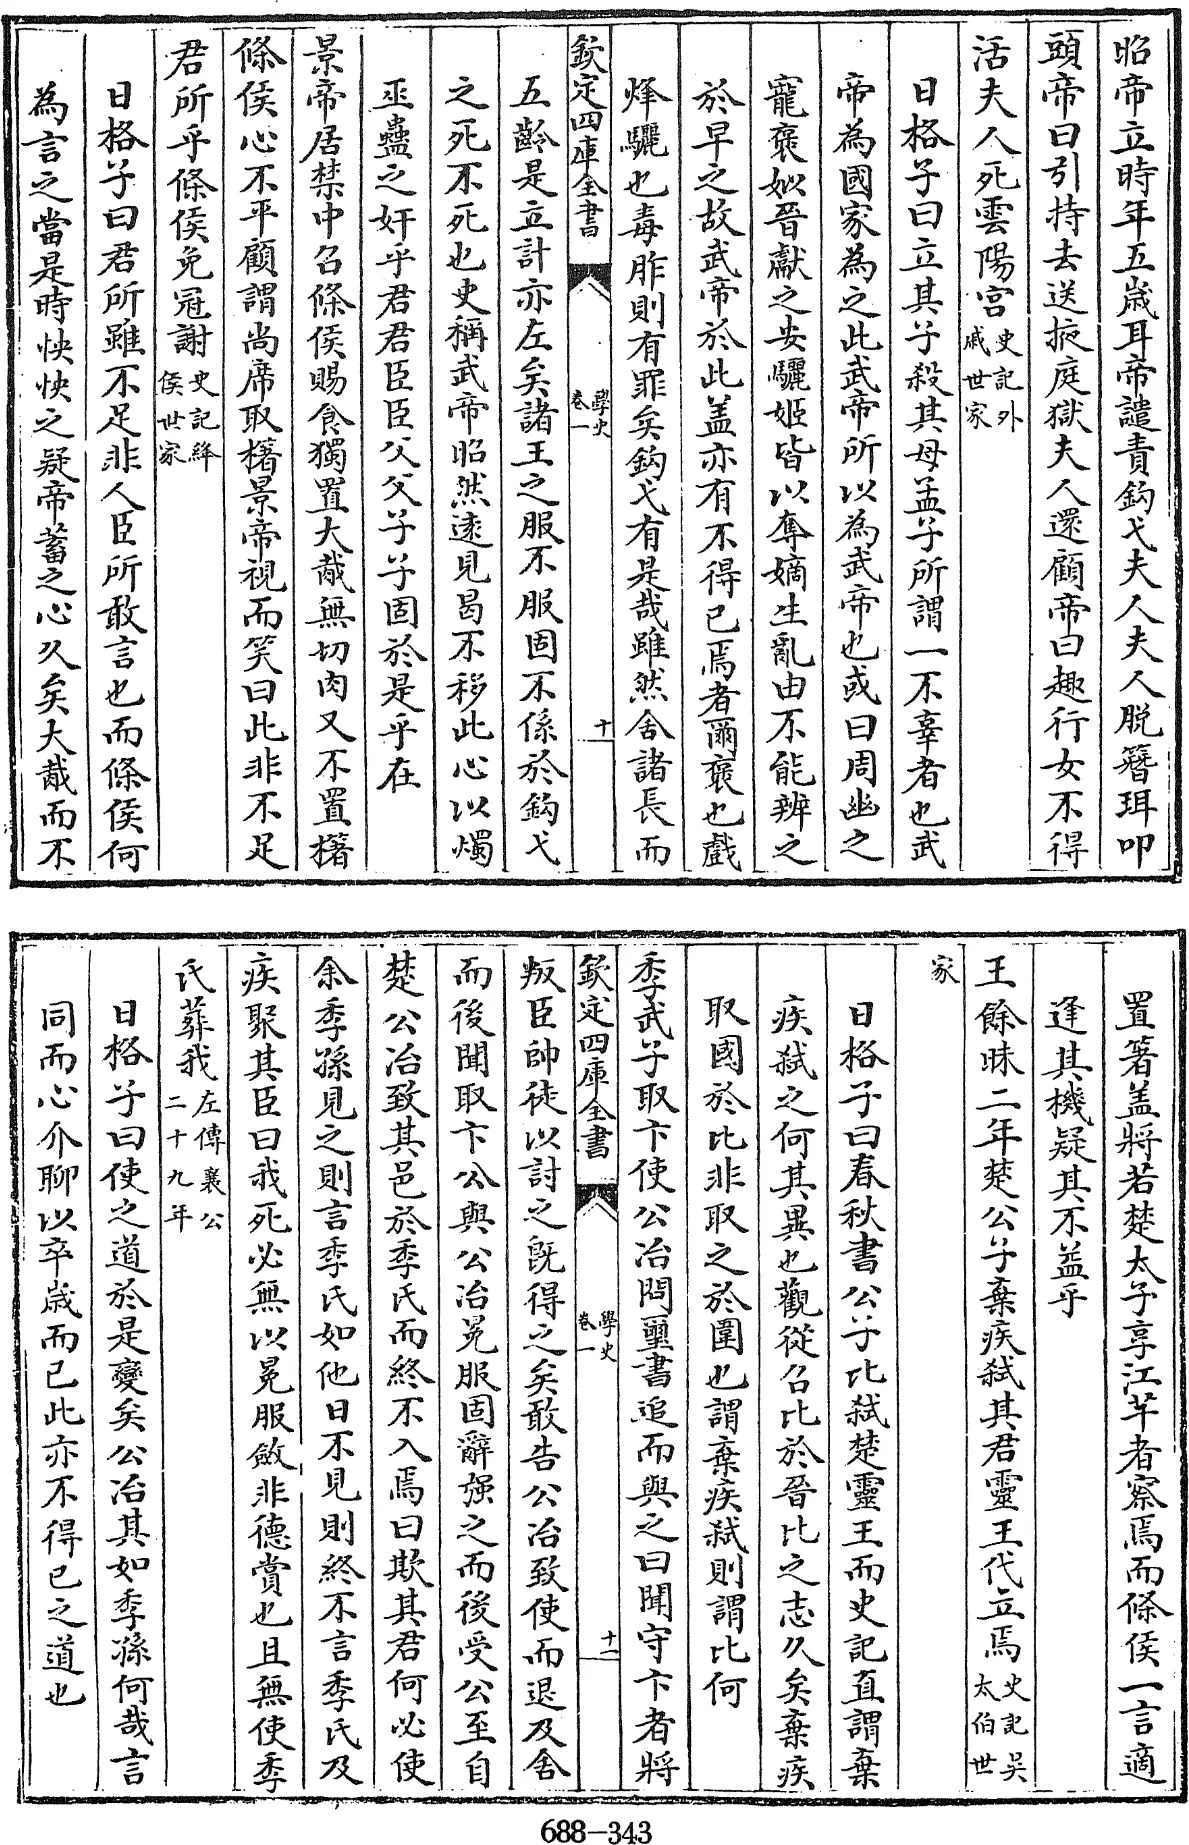 昭帝立時年五歲耳帝譴責鈎弋夫人夫人脱簪珥叩
頭帝曰引持去送掖庭獄夫人還顧帝曰趣行女不得
活夫人死雲陽宫史記外戚世家
日格子曰立其子殺其母孟子所謂一不辜者也武
帝為國家為之此武帝所以為武帝也或曰周幽之
寵褒姒晉獻之安驪姬皆以奪嫡生亂由不能辨之
於早之故武帝於此盖亦有不得已焉者爾褒也戲
烽驪也毒胙則有罪矣鈎弋有是哉雖然舍諸長而
欽定四庫全書 學史卷一 十
五齡是立計亦左矣諸王之服不服固不係於鈎弋
之死不死也史稱武帝昭然逺見曷不移此心以燭
巫蠱之奸乎君君臣臣父父子子固於是乎在
景帝居禁中召條侯賜食獨置大胾無切肉又不置櫡
條侯心不平顧謂尚席取櫡景帝視而笑曰此非不足
君所乎條侯免冠謝史記絳侯世家
日格子曰君所雖不足非人臣所敢言也而條侯何
為言之當是時怏怏之疑帝蓄之心久矣大胾而不
置箸盖將若楚太子享江芊者察焉而條侯一言適
逢其機疑其不益乎
王餘昧二年楚公子棄疾弑其君靈王代立焉史記吳太伯世
家
日格子曰春秋書公子比弑楚靈王而史記直謂棄
疾弑之何其異也觀從召比於晉比之志久矣棄疾
取國於比非取之於圍也謂棄疾弑則謂比何
季武子取卞使公冶問璽書追而與之曰聞守卞者將
欽定四庫全書 學史卷一 十一
叛臣帥徒以討之既得之矣敢告公冶致使而退及舍
而後聞取卞公與公冶冕服固辭强之而後受公至自
楚公冶致其邑於季氏而終不入焉曰欺其君何必使
余季孫見之則言季氏如他日不見則終不言季氏及
疾聚其臣曰我死必無以冕服斂非德賞也且無使季
氏葬我左傳襄公二十九年
日格子曰使之道於是變矣公冶其如季孫何哉言
同而心介聊以卒歳而已此亦不得已之道也
688-343